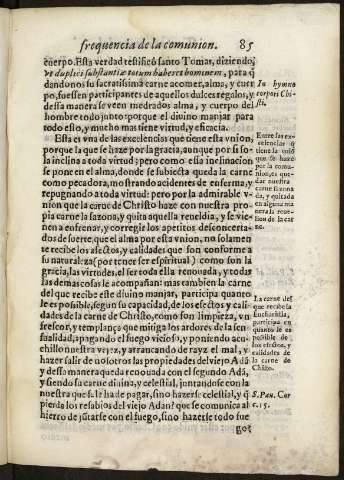 frequencia de la comunion. 85
cuerpo. Esta verdad testificò santo Tomas, diziendo,
Vt duplici substantiæ totum haberet hominem, para q̃
dandonos su sacratissima carne a comer, alma, y cuer
po, fuessen participantes de aquellos dulces regalos, y
dessa manera se veen medrados alma, y cuerpo del
hombre todo junto: porque el diuino manjar para
todo esto, y mucho mas tiene virtud, y eficacia.
Esta es vna de las excelencias que tiene esta vnion,
porque la que se haze por la gracia, aunque por si so-
la inclina a toda virtud; pero como essa inclinacion
se pone en el alma, donde se subiecta queda la carne
como pecadora, mostrando acidentes de enferma, y
repugnando a toda virtud: pero por la admirable v
nion que la carne de Christo haze con nuestra pro
pia carne la sazona, y quita aquella reueldia, y se vie-
nen a enfrenar, y corregir los apetitos desconcerta-
dos de suerte, que el alma por esta vnion, no solamen
te recibe los afectos, y calidades que son conforme a
su naturaleza (por tener ser espiritual) como son la
gracia, las virtudes, el ser toda ella renouada, y todas
las demas cosas le acompañan: mas tambien la carne
del que recibe este diuino manjar, participa quanto
le es posible, segun su capacidad, de los efectos y cali
dades de la carne de Christo, como son limpieza, vn
frescor, y templança que mitiga los ardores de la sen-
sualidad, apagando el fuego vicioso, y poniendo acu-
chillo nuestra vejez, y arrancando de rayz el mal, y
hazer salir de nosotros las propiedades del viejo Adã
y dessa manera queda renouada con el segundo Adã,
y siendo su carne diuina, y celestial, juntandose con la
nuestra que se le ha de pagar, sino hazerse celestial, y q̃
pierda los resabios del viejo Adan? que se comunica al
hierro de jũtarse con el fuego, sino hazerse todo fue
go?
In hymno
corpori Chi-
sti.
Entre las ex-
celencias q̃
tiene la vniõ
que se haze
por la comu-
nion, es que-
dar nuestra
carne sazona
da, y quitada
en alguna ma
nera la reue-
lion de la car
ne.
La carne del
que recibe la
Eucharistia,
participa en
quanto le es
posible de
los efectos, y
calidades de
la carne de
Christo.
S. Pau. Cor
c. 15.